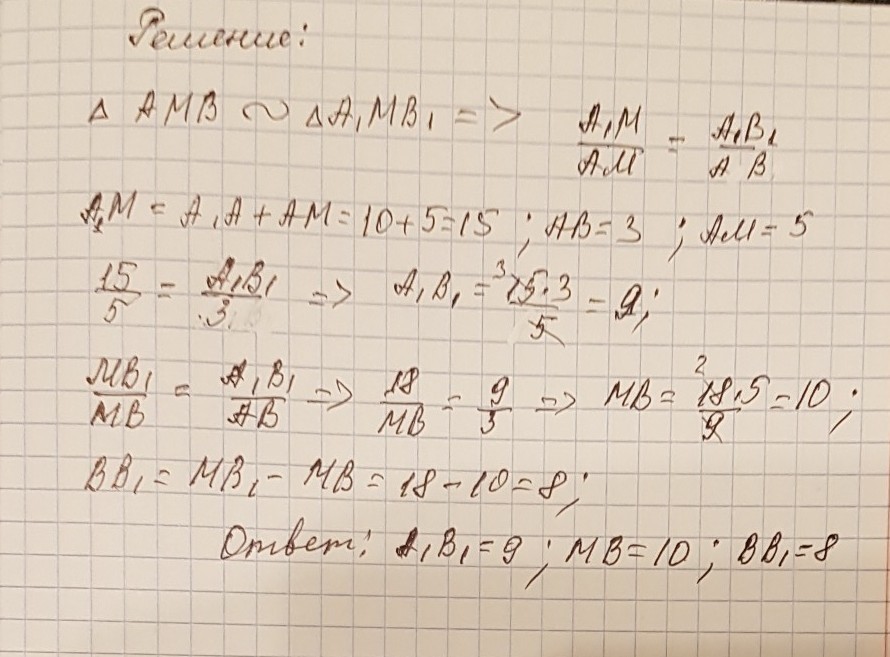 Решение:
△ AMB ∼ △A₁MB₁ => A₁M/AM = A₁B₁/AB
A₁M = A₁A + AM = 10+5=15 ; AB=3 ; AM=5
15/5 = A₁B₁/3 => A₁B₁ = ³15·3/5 = 9;
MB₁/MB = A₁B₁/AB => 18/MB = 9/3 => MB = ²18·5/9 = 10 ;
BB₁ = MB₁ - MB = 18-10=8;
Ответ: A₁B₁=9 ; MB=10 ; BB₁=8